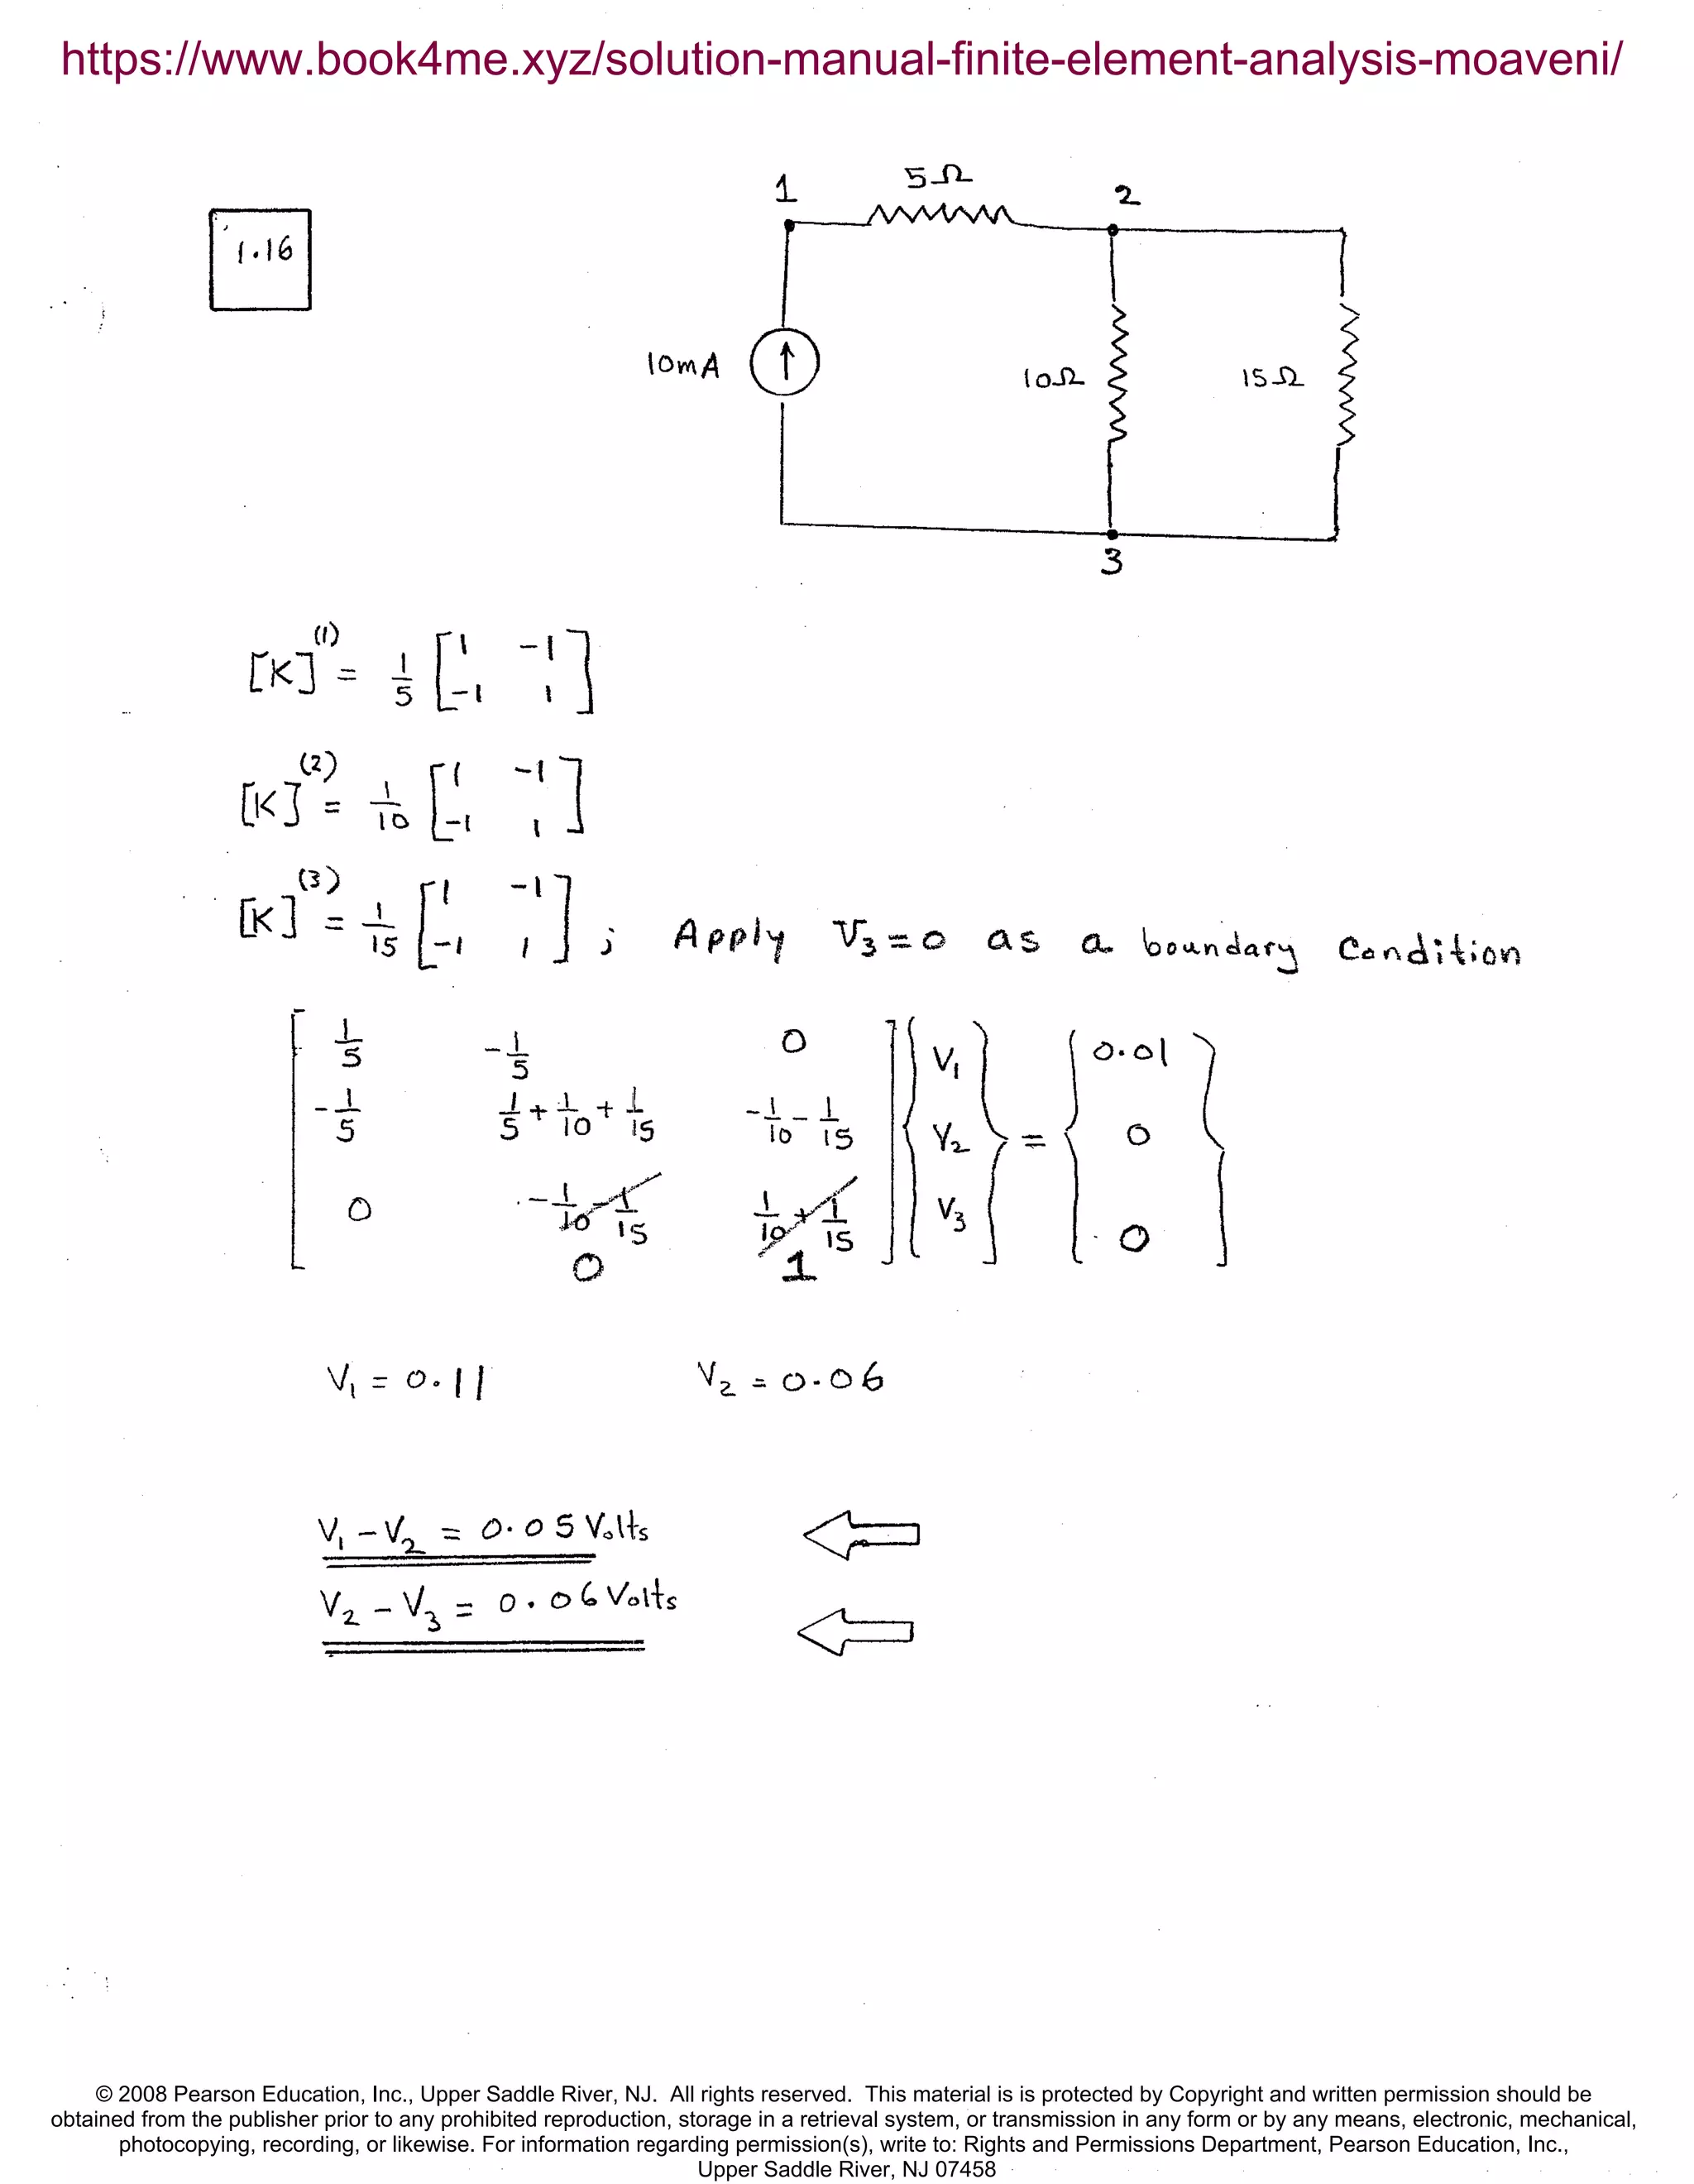 https://www.book4me.xyz/solution-manual-finite-element-analysis-moaveni/
1.16
1 5Ω 2
10mA ↑ 10Ω 15Ω
3
[K]⁽¹⁾ = 1/5 [1 -1; -1 1]
[K]⁽²⁾ = 1/10 [1 -1; -1 1]
[K]⁽³⁾ = 1/15 [1 -1; -1 1] ; Apply V₃ = 0 as a boundary Condition
1/5 -1/5 0 V₁ 0.01
-1/5 1/5 + 1/10 + 1/15 -1/10 - 1/15 V₂ = 0
0 -1/10 - 1/15 1/10 + 1/15 V₃ 0
0 1
V₁ = 0.11 V₂ = 0.06
V₁ - V₂ = 0.05 Volts
V₂ - V₃ = 0.06 Volts
© 2008 Pearson Education, Inc., Upper Saddle River, NJ. All rights reserved. This material is is protected by Copyright and written permission should be
obtained from the publisher prior to any prohibited reproduction, storage in a retrieval system, or transmission in any form or by any means, electronic, mechanical,
photocopying, recording, or likewise. For information regarding permission(s), write to: Rights and Permissions Department, Pearson Education, Inc.,
Upper Saddle River, NJ 07458